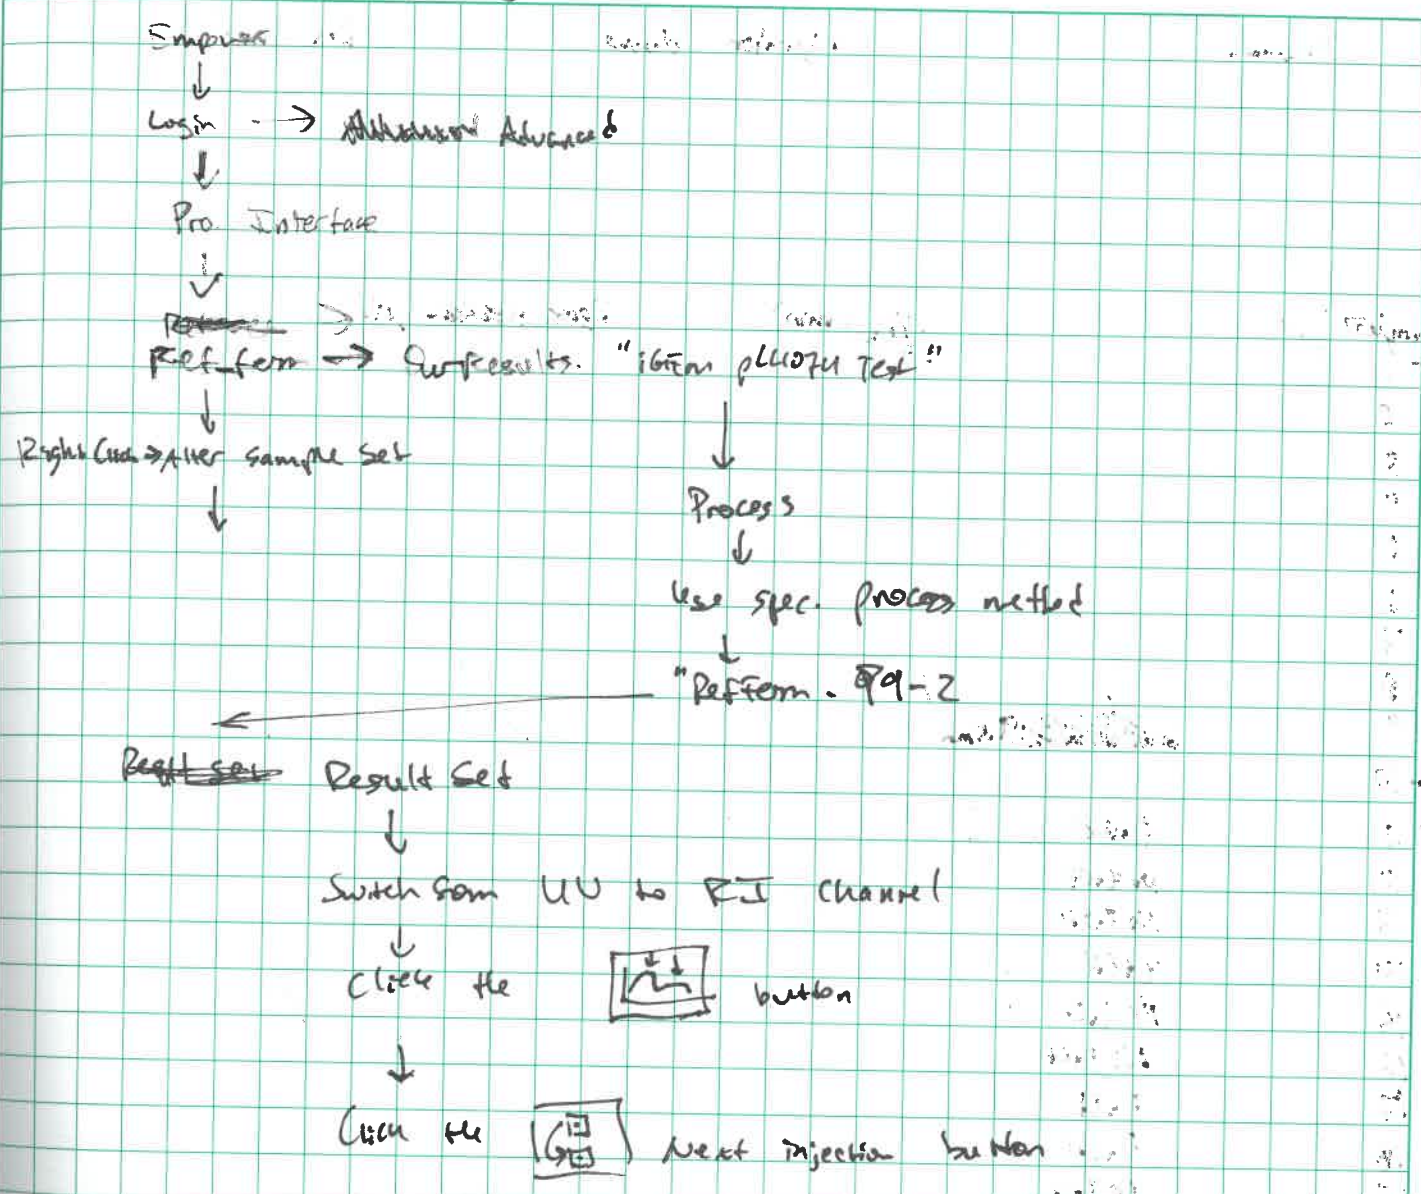 Empower
Login → Advanced
Pro. Interface
Ref_ferm → Results. "iGEM pL4074 Test"
Right Click → Alter Sample Set
Process
Use spec. process method
"RefFerm. 99-2
Result Set
Result Set
Switch from UV to RI Channel
Click the button
Click the Next injection button